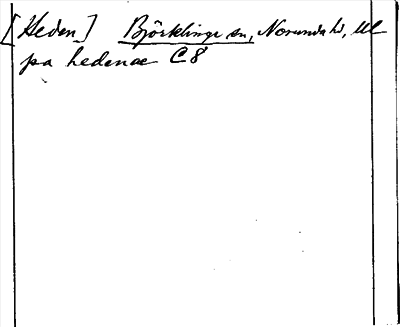 [Heden] Björklinge sn, Norunda hd, Ul
pa hedenae C 8